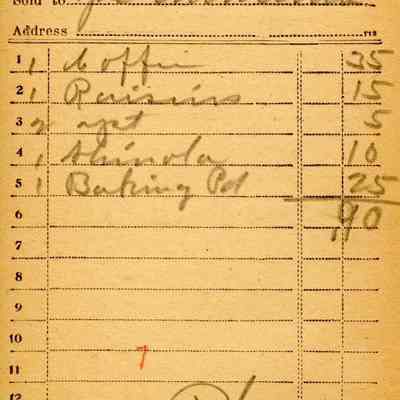 Sold to
Address
1 1 Coffie 35
2 1 Raisins 15
3 2 yst 5
4 1 Shinola 10
5 1 Baking Pd 25
6 90
7
8
9
10
7
11
12